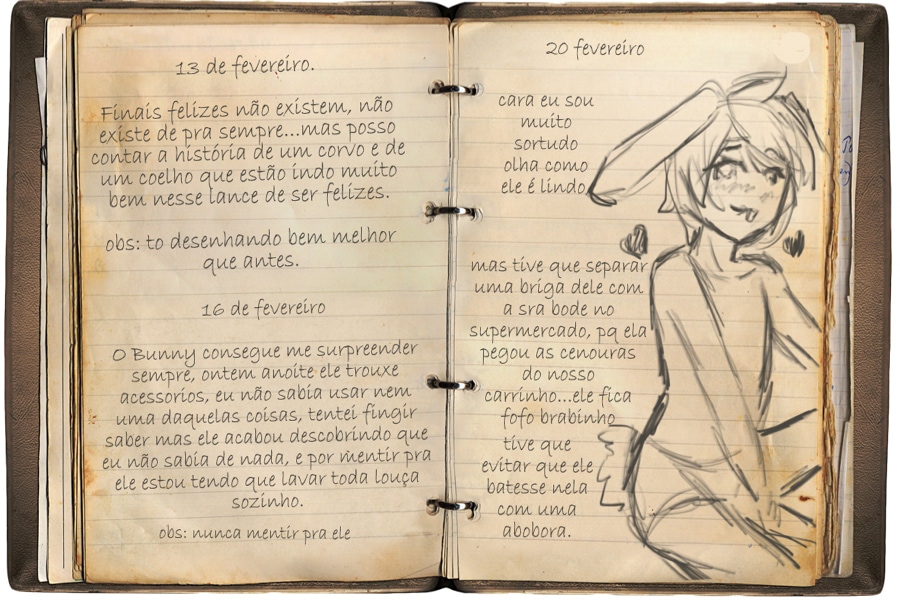 13 de fevereiro.
Finais felizes não existem, não
existe de pra sempre...mas posso
contar a história de um corvo e de
um coelho que estão indo muito
bem nesse lance de ser felizes.
obs: to desenhando bem melhor
que antes.
16 de fevereiro
O Bunny consegue me surpreender
sempre, ontem anoite ele trouxe
acessorios, eu não sabia usar nem
uma daquelas coisas, tentei fingir
saber mas ele acabou descobrindo que
eu não sabia de nada, e por mentir pra
ele estou tendo que lavar toda louça
sozinho.
obs: nunca mentir pra ele
20 fevereiro
cara eu sou
muito
sortudo
olha como
ele é lindo
mas tive que separar
uma briga dele com
a sra bode no
supermercado, pq ela
pegou as cenouras
do nosso
carrinho...ele fica
fofo brabinho
tive que
evitar que ele
batesse nela
com uma
abobora.